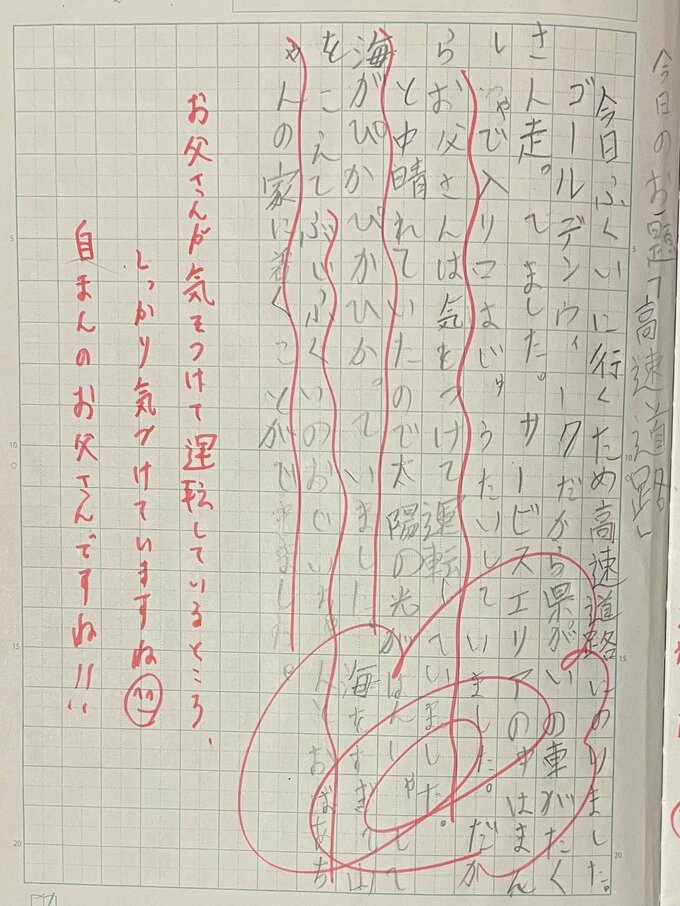 今日のお題「高速道路」
今日ふくいに行くため高速道路にのりました。
ゴールデンウィークだから県がいの車がたく
さん走ってました。サービスエリアの中はまん
しゃで入り口はじゅうたいしていました。だか
らお父さんは気をつけて運転していました。
と中晴れていたので太陽の光がはんしゃして
海がぴかぴかひかっていました。海をすぎて山
をこえてぶじふくいのおじいちゃんとおばあち
ゃんの家に着くことができました。
お父さんが気をつけて運転しているところ、
しっかり気づけていますね
自まんのお父さんですね!!